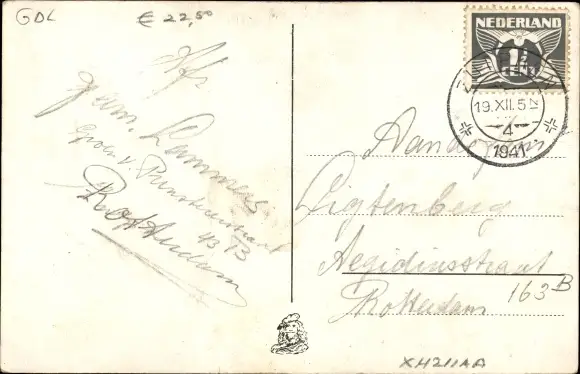 GDL
€ 22,50
Afz
fam. Lammers
Groen v Prinstererstraat
43 B
Rotterdam
NEDERLAND
1½
19.XII.5
4
1941
Aan de fam
Ligtenberg
Aegidiusstraat
163 B
Rotterdam
XH211AA